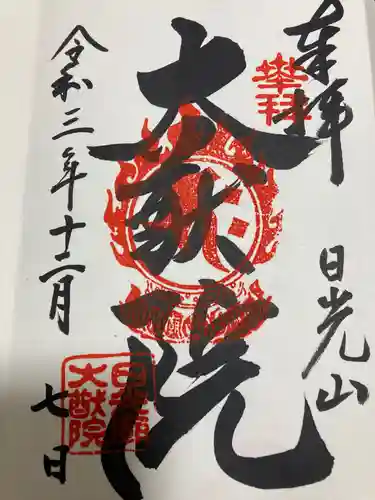 奉拝
日光山
大猷院
令和三年十二月
七日
大猷院